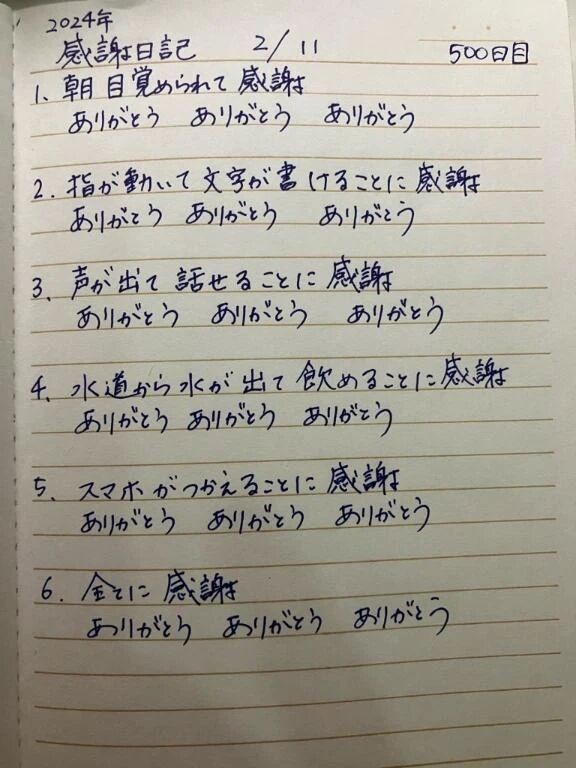 2024年
感謝日記 2/11 500日目
1. 朝 目覚められて 感謝
ありがとう ありがとう ありがとう
2. 指が動いて 文字が書けることに 感謝
ありがとう ありがとう ありがとう
3. 声が出て 話せることに 感謝
ありがとう ありがとう ありがとう
4. 水道から水が出て 飲めることに感謝
ありがとう ありがとう ありがとう
5. スマホがつかえることに 感謝
ありがとう ありがとう ありがとう
6. 全てに 感謝
ありがとう ありがとう ありがとう